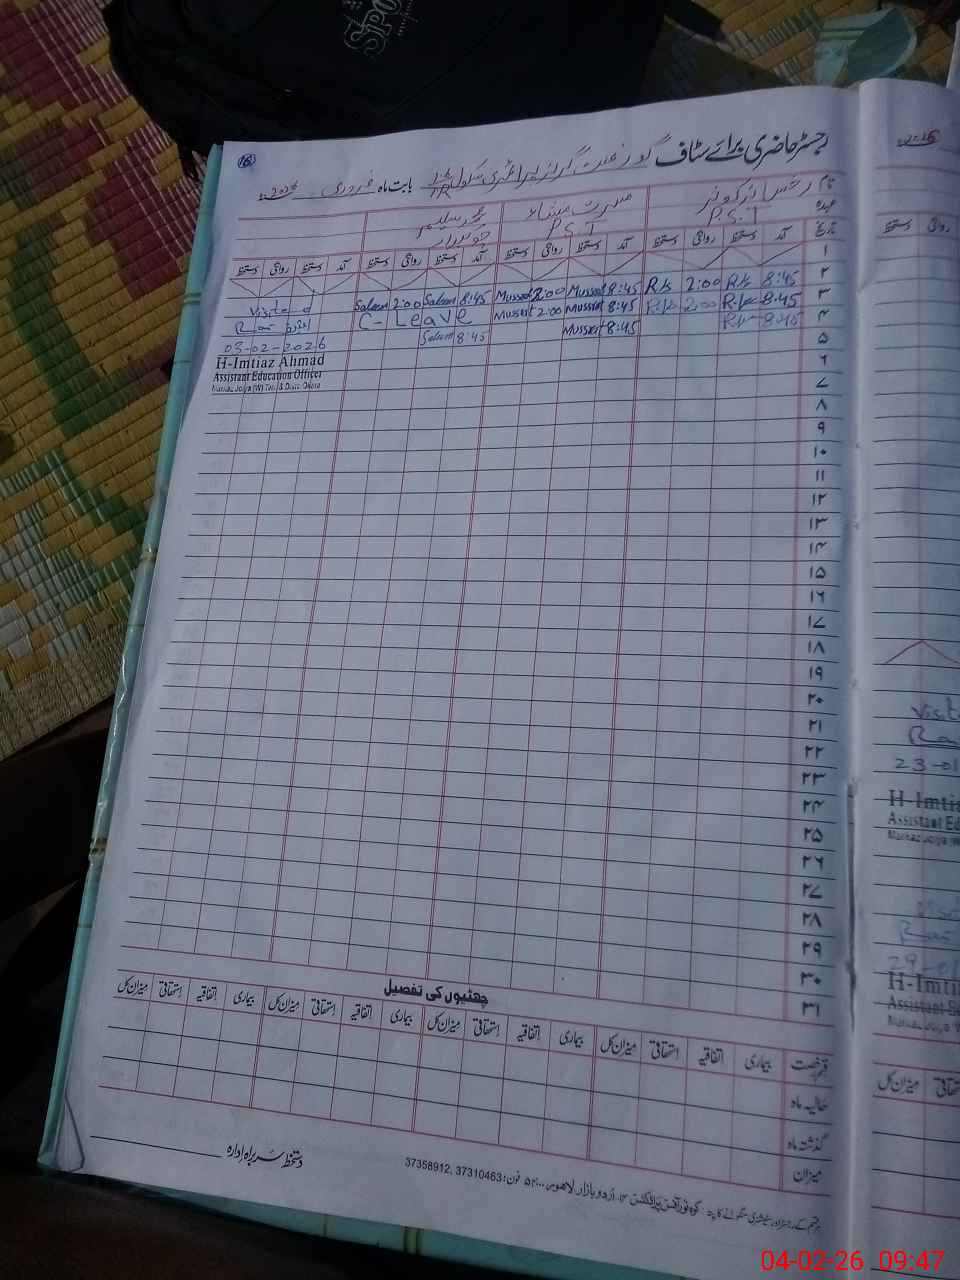 SPO
16
رجسٹر حاضری برائے سٹاف گورنمنٹ گرلز پرائمری سکول بابت ماہ فروری 2026
نام
عہدہ P.S.T P.S.T چوکیدار
تاریخ آمد دستخط روانگی دستخط آمد دستخط روانگی دستخط آمد دستخط روانگی دستخط آمد دستخط روانگی دستخط
۱
۲ 8:45 R/s 2:00 R/s 8:45 Mussrat 2:00 Mussrat 8:45 Saleem 2:00 Saleem
Visited
۳ 8:45 R/s 2:00 R/s 8:45 Mussrat 2:00 Mussrat C-Leave
۴ 8:45 R/s 8:45 Mussrat 8:45 Saleem
03-02-2026
H-Imtiaz Ahmad
Assistant Education Officer
۵
۶
۷
۸
۹
۱۰
۱۱
۱۲
۱۳
۱۴
۱۵
۱۶
۱۷
۱۸
۱۹
۲۰
۲۱
۲۲
۲۳
۲۴
۲۵
۲۶
۲۷
۲۸
۲۹
۳۰
۳۱
چھٹیوں کی تفصیل
قسم رخصت بیماری اتفاقیہ استحقاقی میزان کل بیماری اتفاقیہ استحقاقی میزان کل بیماری اتفاقیہ استحقاقی میزان کل بیماری اتفاقیہ استحقاقی میزان کل
حالیہ ماہ
گذشتہ ماہ
میزان
دستخط سربراہ ادارہ
اردو بازار لاہور فون: 37310463, 37358912
روانگی
23-01
H-Imtia
Assistant Ed
29-01
H-Imtia
Assistant
میزان کل
04-02-26 09:47